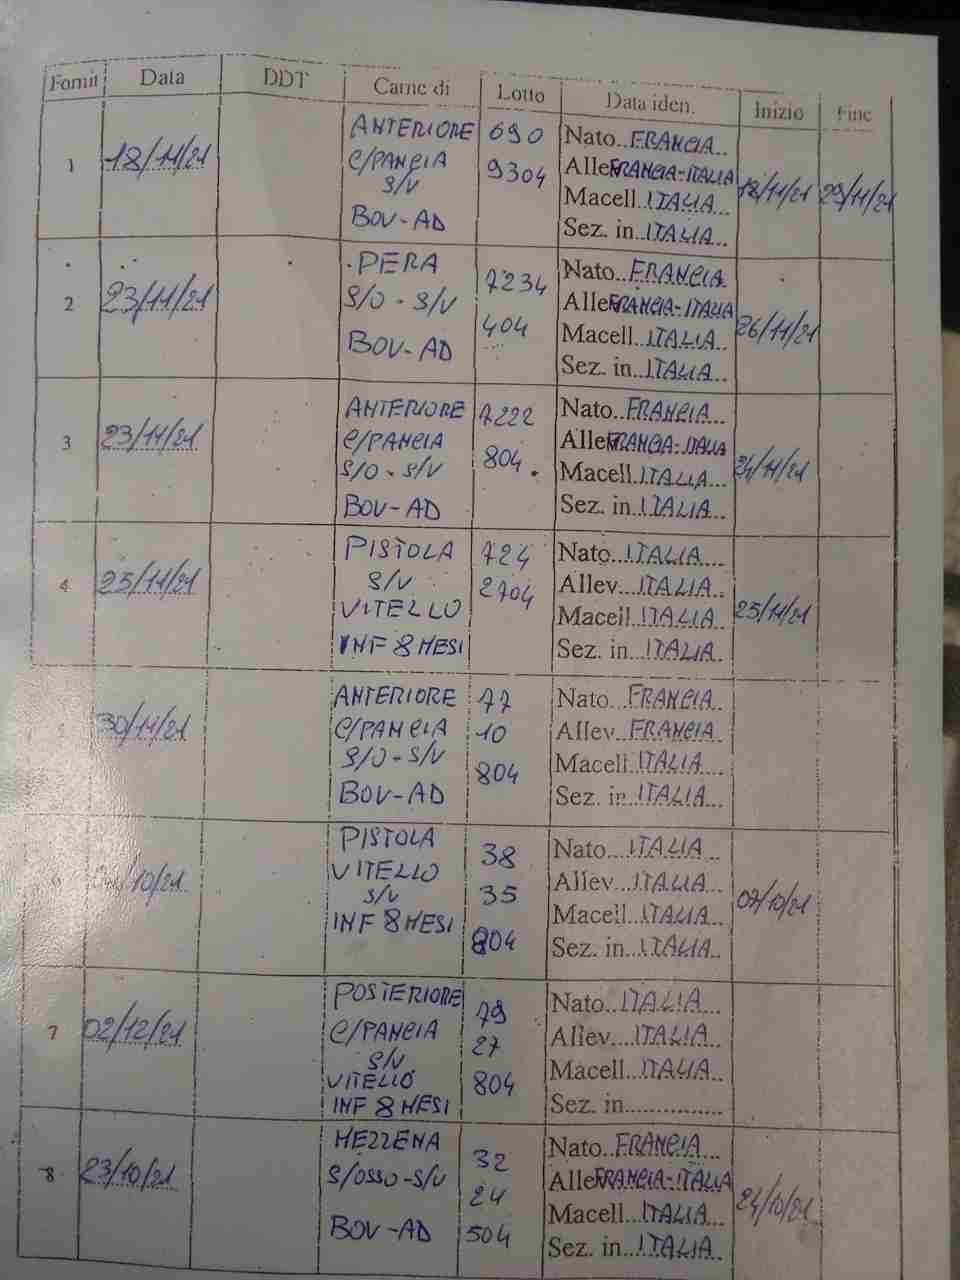 Fornit Data DDT Carne di Lotto Data iden. Inizio Fine
1 18/11/21 ANTERIORE 690 Nato..FRANCIA.. 18/11/21 29/11/21
C/PANCIA 9304 Alle FRANCIA-ITALIA
S/V Macell..ITALIA..
BOV-AD Sez. in..ITALIA..
2 23/11/21 PERA 7234 Nato..FRANCIA.. 26/11/21
S/O - S/V 404 Alle FRANCIA-ITALIA
BOV-AD Macell..ITALIA..
Sez. in..ITALIA..
3 23/11/21 ANTERIORE 7222 Nato..FRANCIA.. 24/11/21
C/PANCIA 804 Alle FRANCIA-ITALIA
S/O - S/V Macell..ITALIA...
BOV-AD Sez. in..ITALIA...
4 25/11/21 PISTOLA 724 Nato..ITALIA... 25/11/21
S/V 2704 Allev...ITALIA..
VITELLO Macell..ITALIA..
INF 8 MESI Sez. in..ITALIA..
5 30/11/21 ANTERIORE 77 Nato..FRANCIA
C/PANCIA 10 Allev..FRANCIA
S/O - S/V 804 Macell..ITALIA..
BOV-AD Sez. in..ITALIA...
6 /10/21 PISTOLA 38 Nato...ITALIA.. 07/10/21
VITELLO 35 Allev...ITALIA..
S/V 804 Macell..ITALIA..
INF 8 MESI Sez. in..ITALIA..
7 02/12/21 POSTERIORE 79 Nato..ITALIA...
C/PANCIA 27 Allev....ITALIA..
S/V 804 Macell...ITALIA..
VITELLO Sez. in...............
INF 8 MESI
8 23/10/21 MEZZENA 32 Nato..FRANCIA... 24/10/21
S/OSSO-S/V 24 Alle FRANCIA-ITALIA
BOV-AD 504 Macell...ITALIA..
Sez. in...ITALIA..